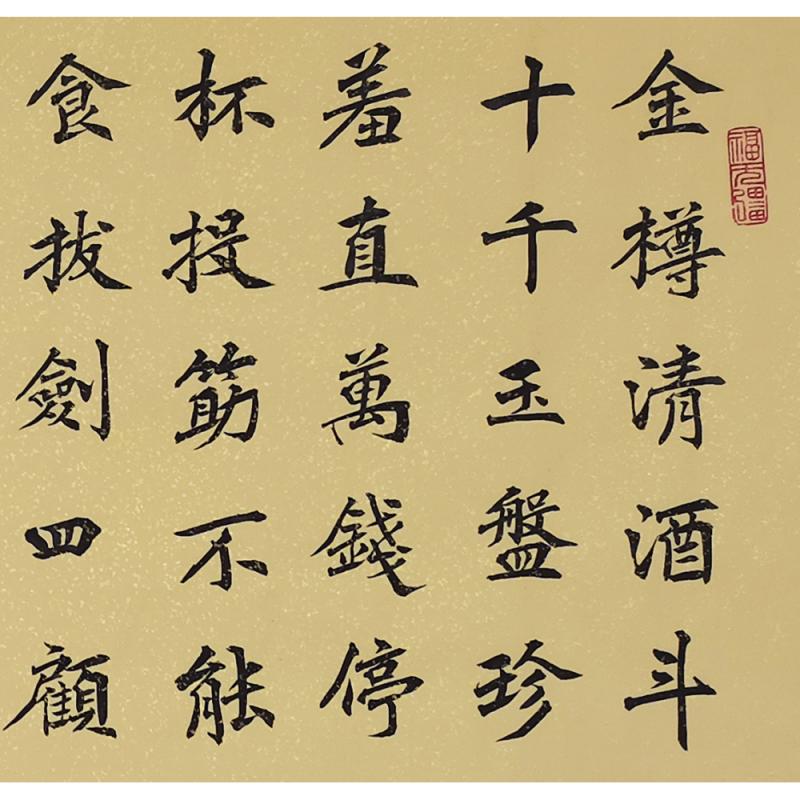 福无疆
金樽清酒斗
十千玉盤珍
羞直萬錢停
杯投筯不能
食拔劍四顧